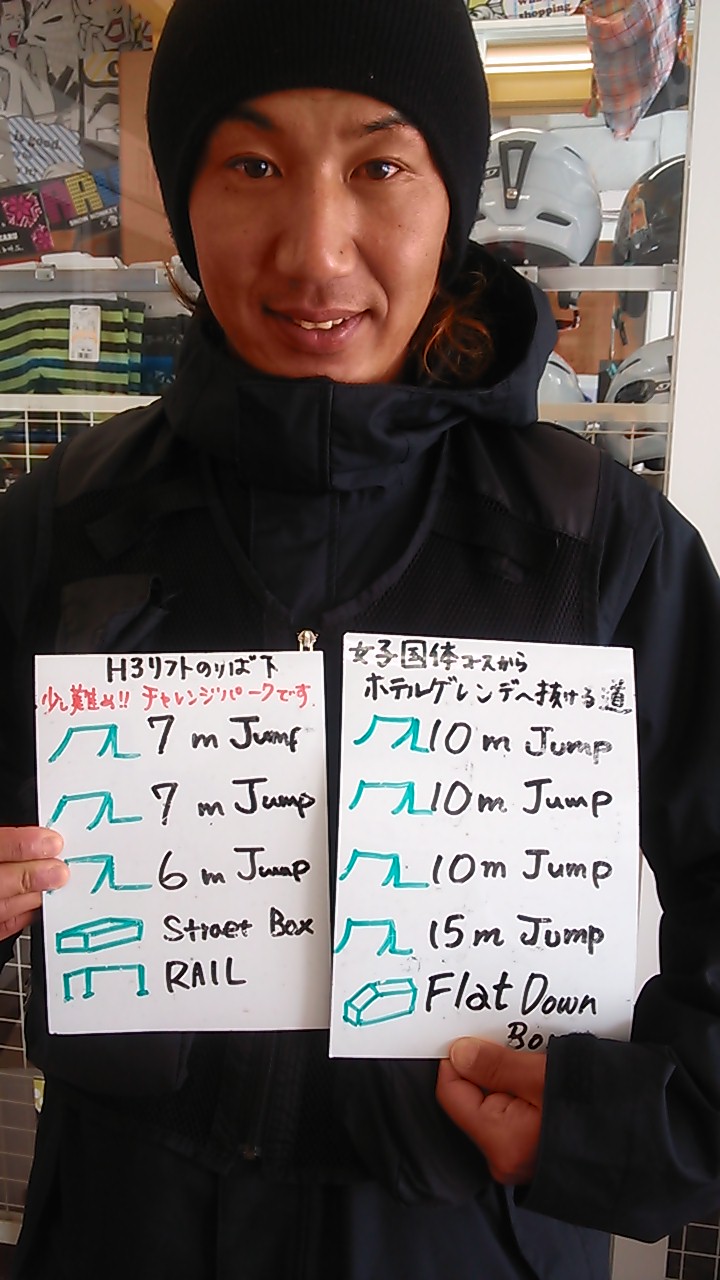 H3リフトのりば下
少し難め!! チャレンジパークです.
7m Jump
7m Jump
6m Jump
Street Box
RAIL
女子国体コースから
ホテルゲレンデへ抜ける道
10m Jump
10m Jump
10m Jump
15m Jump
Flat Down
shopping
is Good.